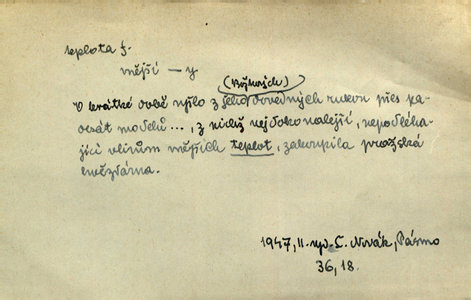 teplota f.
vnější — y
(Býkových)
V krátké době vyšlo z jeho dovedných rukou přes pa-
desát modelů ..., z nichž nejdokonalejší, nepodléha-
jící vlivům vnějších teplot, zakoupila pražská
hvězdárna.
1947, II. vyd. L. Novák, Pásmo
36, 18.